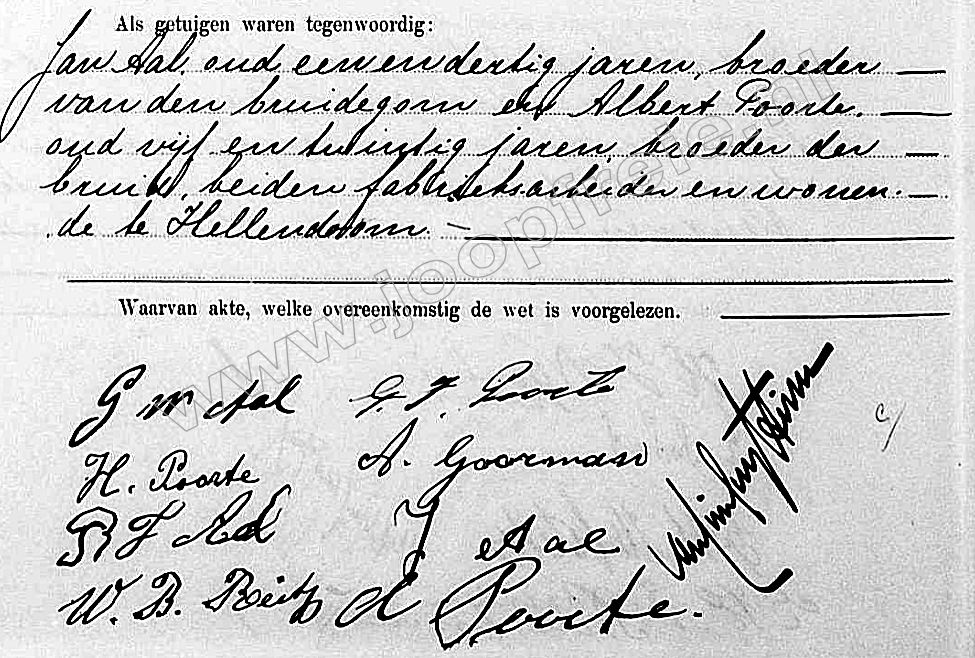 Als getuigen waren tegenwoordig:
Jan Aal, oud een en dertig jaren, broeder
van den bruidegom en Albert Poorte,
oud vijf en twintig jaren, broeder der
bruid, beiden fabrieksarbeider en wonen-
de te Hellendoorn.
Waarvan akte, welke overeenkomstig de wet is voorgelezen.
G W Aal G. J. Poorte
H. Poorte A. Goorman
J Aal
W. B. A Poorte.
www.joopfrere.nl